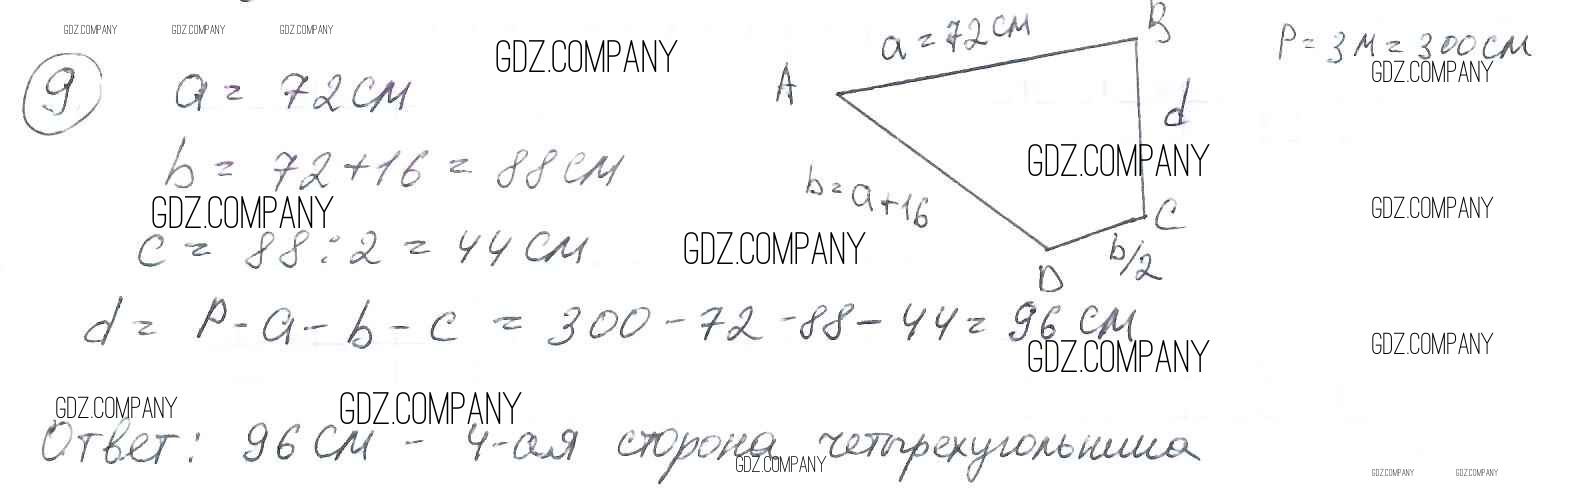 GDZ.COMPANY GDZ.COMPANY GDZ.COMPANY
9
a = 72 см
GDZ.COMPANY
a = 72 см
B
P = 3 м = 300 см
GDZ.COMPANY
A
d
b = 72 + 16 = 88 см
GDZ.COMPANY
b = a + 16
GDZ.COMPANY
GDZ.COMPANY
C
c = 88 : 2 = 44 см
GDZ.COMPANY
D
b/2
d = P - a - b - c = 300 - 72 - 88 - 44 = 96 см
GDZ.COMPANY
GDZ.COMPANY
GDZ.COMPANY
GDZ.COMPANY
Ответ: 96 см - 4-ая сторона четырехугольника
GDZ.COMPANY
GDZ.COMPANY GDZ.COMPANY